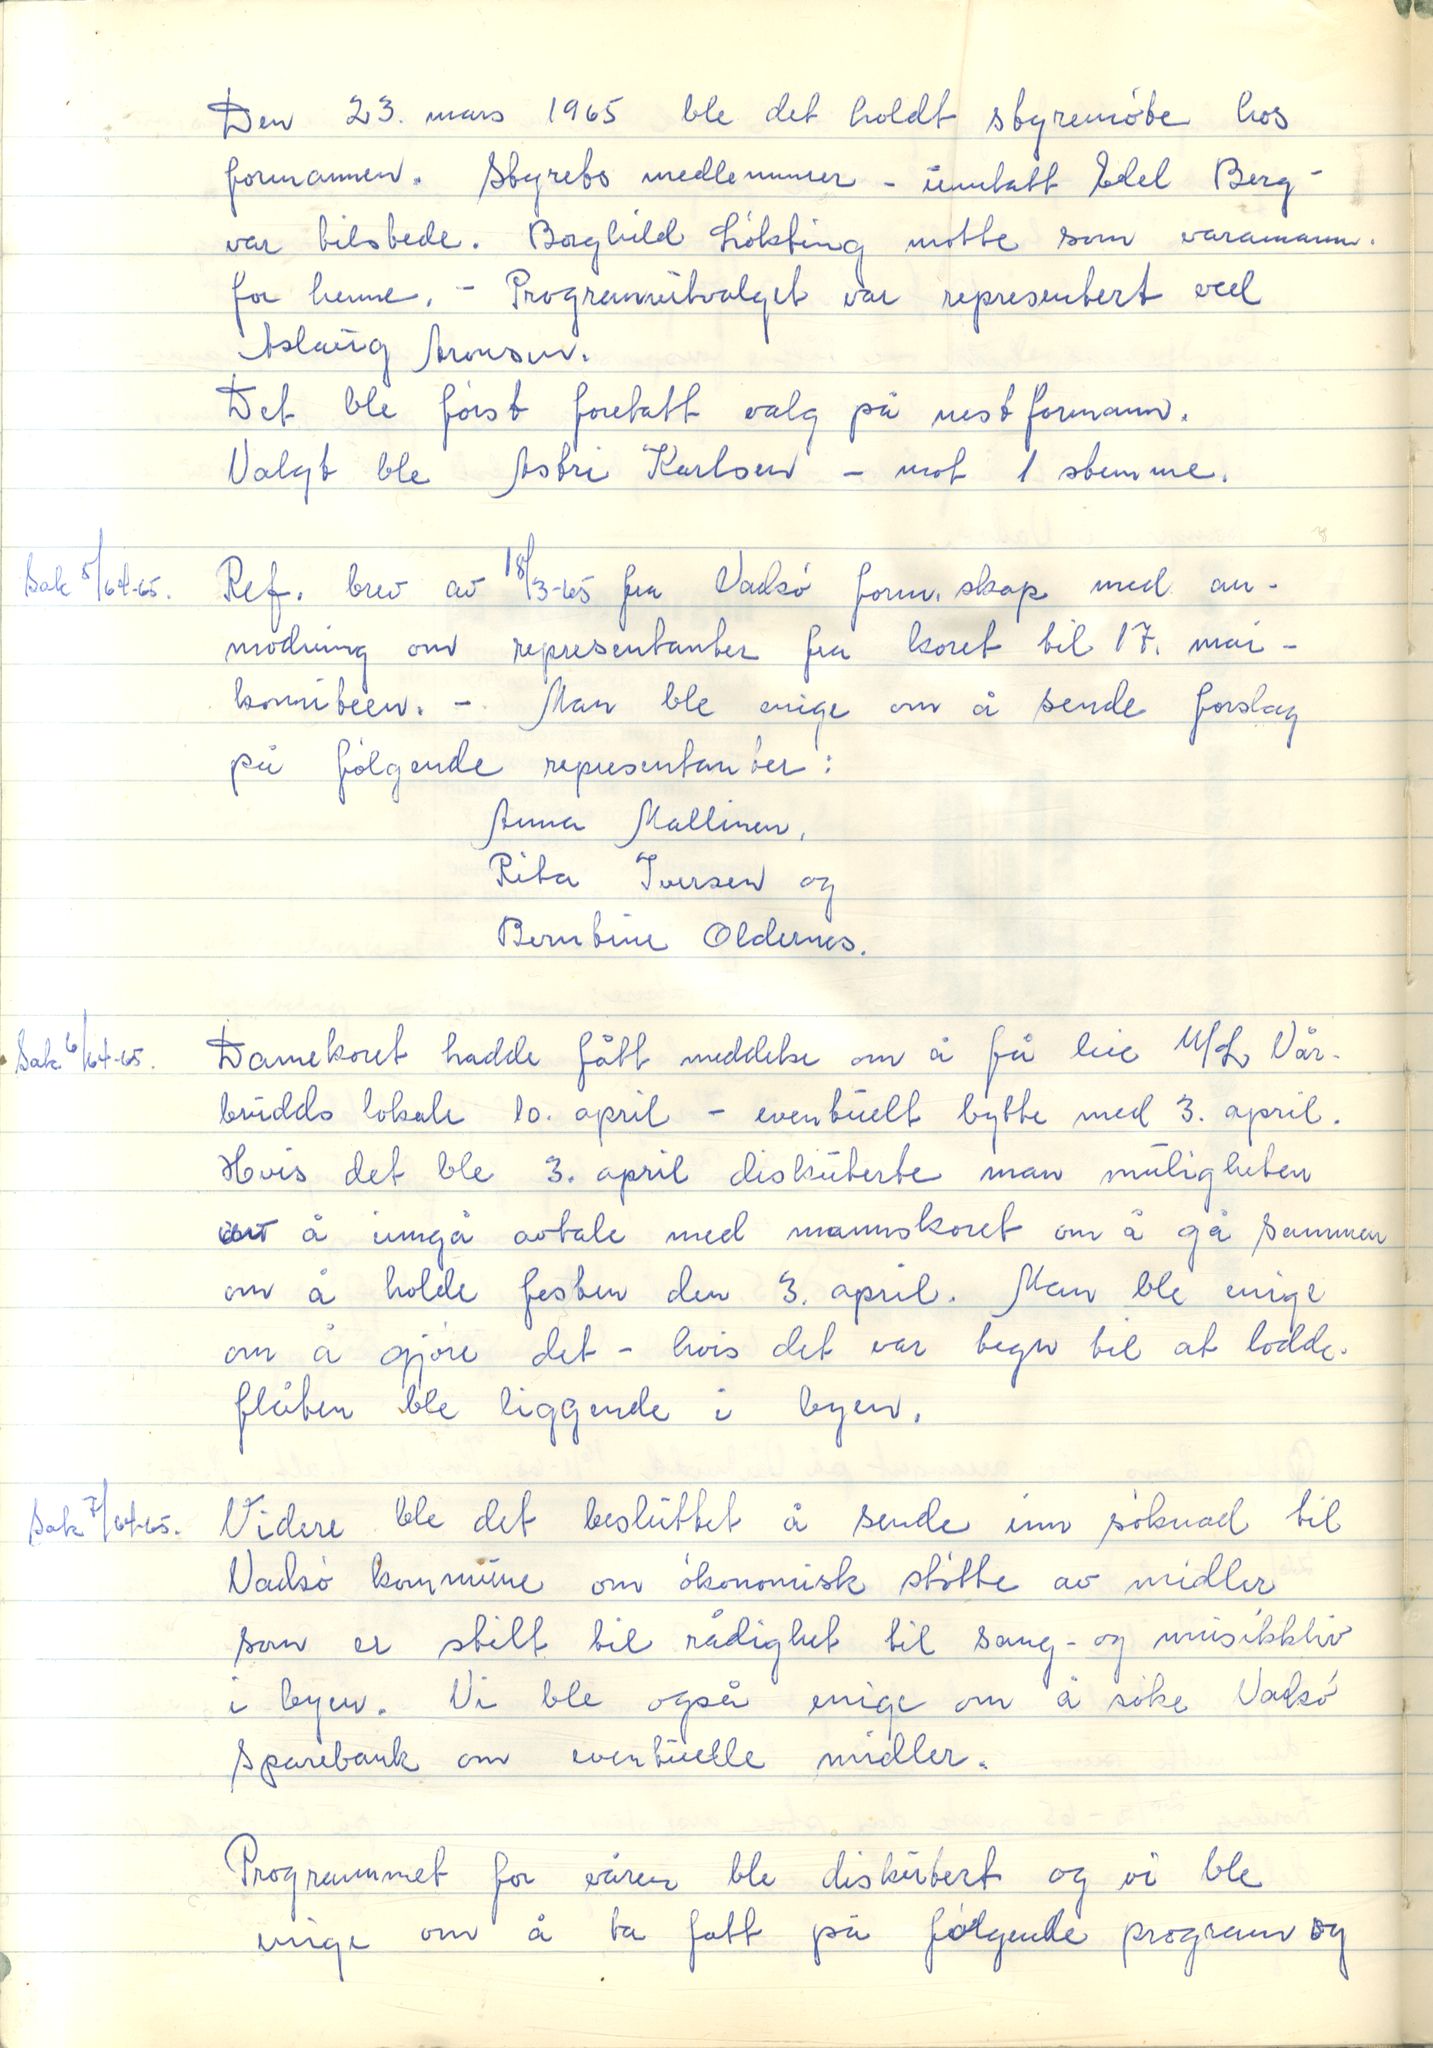 Den 23. mars 1965 ble det holdt styremöte hos
formannen. Styrets medlemmer - unntatt Edel Berg -
var tilstede. Borghild Lökting møtte som varamann
for henne. - Programutvalget var representert ved
Aslaug Aronsen.
Det ble först foretatt valg på nestformann.
Valgt ble Astri Karlsen - mot 1 stemme.
Sak 5/64-65. Ref. brev av 18/3-65 fra Vadsö form.skap med an-
modning om representanter fra koret til 17. mai -
komiteen. - Man ble enige om å sende forslag
på fölgende representanter:
Anna Mallinen,
Rita Iversen og
Berntine Oldernes.
Sak 6/64-65. Damekoret hadde fått meddelse om å få leie U/L Vår-
brudds lokale 10. april - eventuelt bytte med 3. april.
Hvis det ble 3. april diskuterte man muligheten
av å inngå avtale med mannskoret om å gå sammen
om å holde festen den 3. april. Man ble enige
om å gjöre det - hvis det var tegn til at lodde-
flåten ble liggende i byen.
Sak 7/64-65. Videre ble det besluttet å sende inn söknad til
Vadsö kommune om ökonomisk stötte av midler
som er stilt til rådighet til sang- og musikkliv
i byen. Vi ble også enige om å söke Vadsö
Sparebank om eventuelle midler.
Programmet for våren ble diskutert og vi ble
enige om å ta fatt på følgende program og